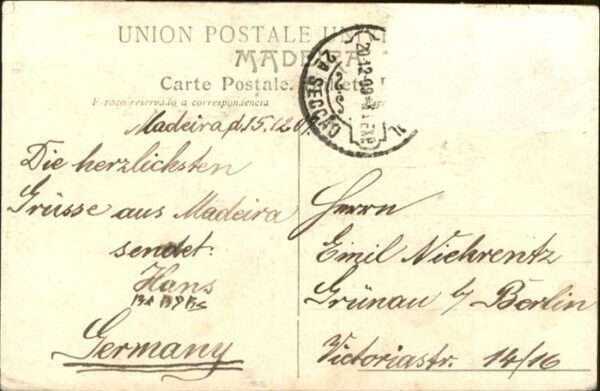 UNION POSTALE
MADEIRA
Carte Postale.
Espaço reservado a correspondencia
2A SECÇÃO
20-12-09
Madeira d. 15.12.09.
Die herzlichsten
Grüsse aus Madeira
sendet:
Hans
Germany
Herrn
Emil Niehrentz
Grünau b/ Berlin
Victoriastr. 14/16